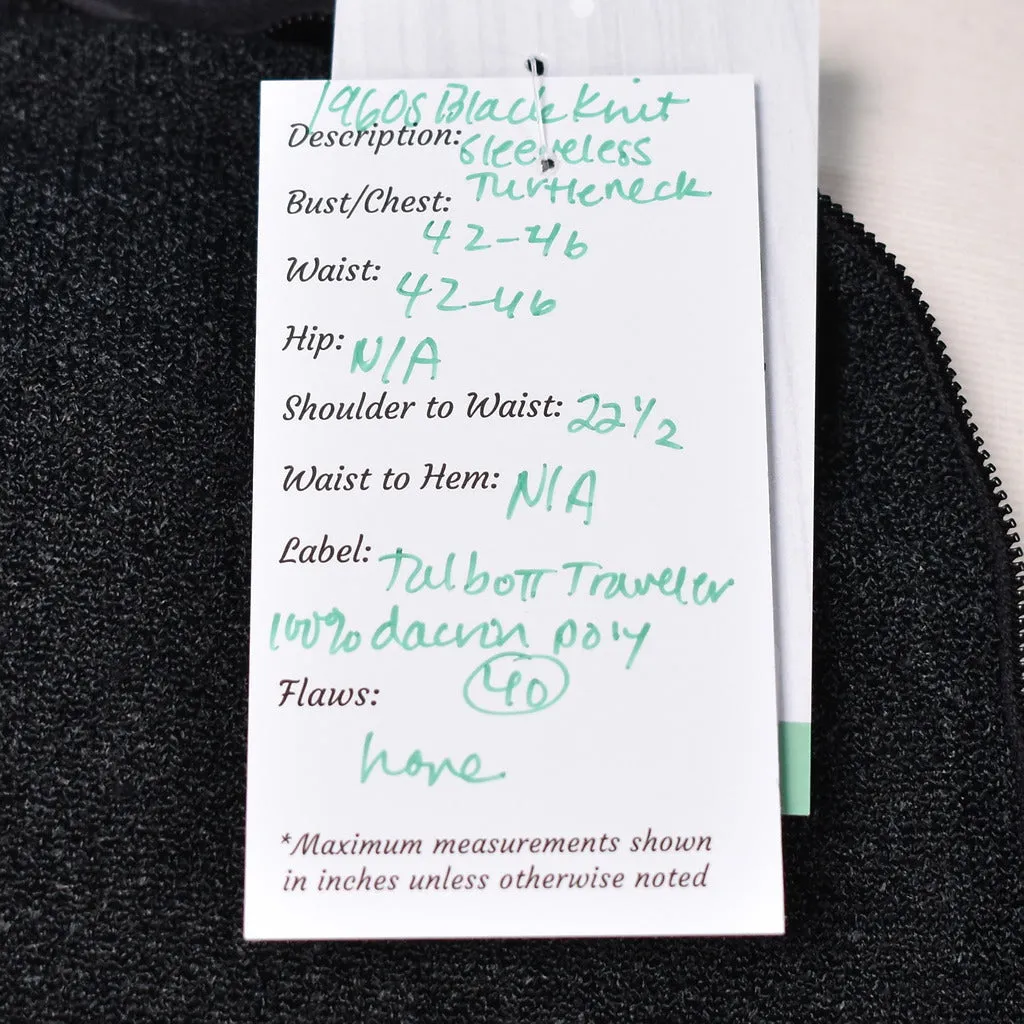 1960s Black Knit
Description: Sleeveless
Turtleneck
Bust/Chest:
42-46
Waist: 42-46
Hip: N/A
Shoulder to Waist: 22 1/2
Waist to Hem: N/A
Label: Talbott Traveler
100% dacron poly
40
Flaws:
none
*Maximum measurements shown
in inches unless otherwise noted